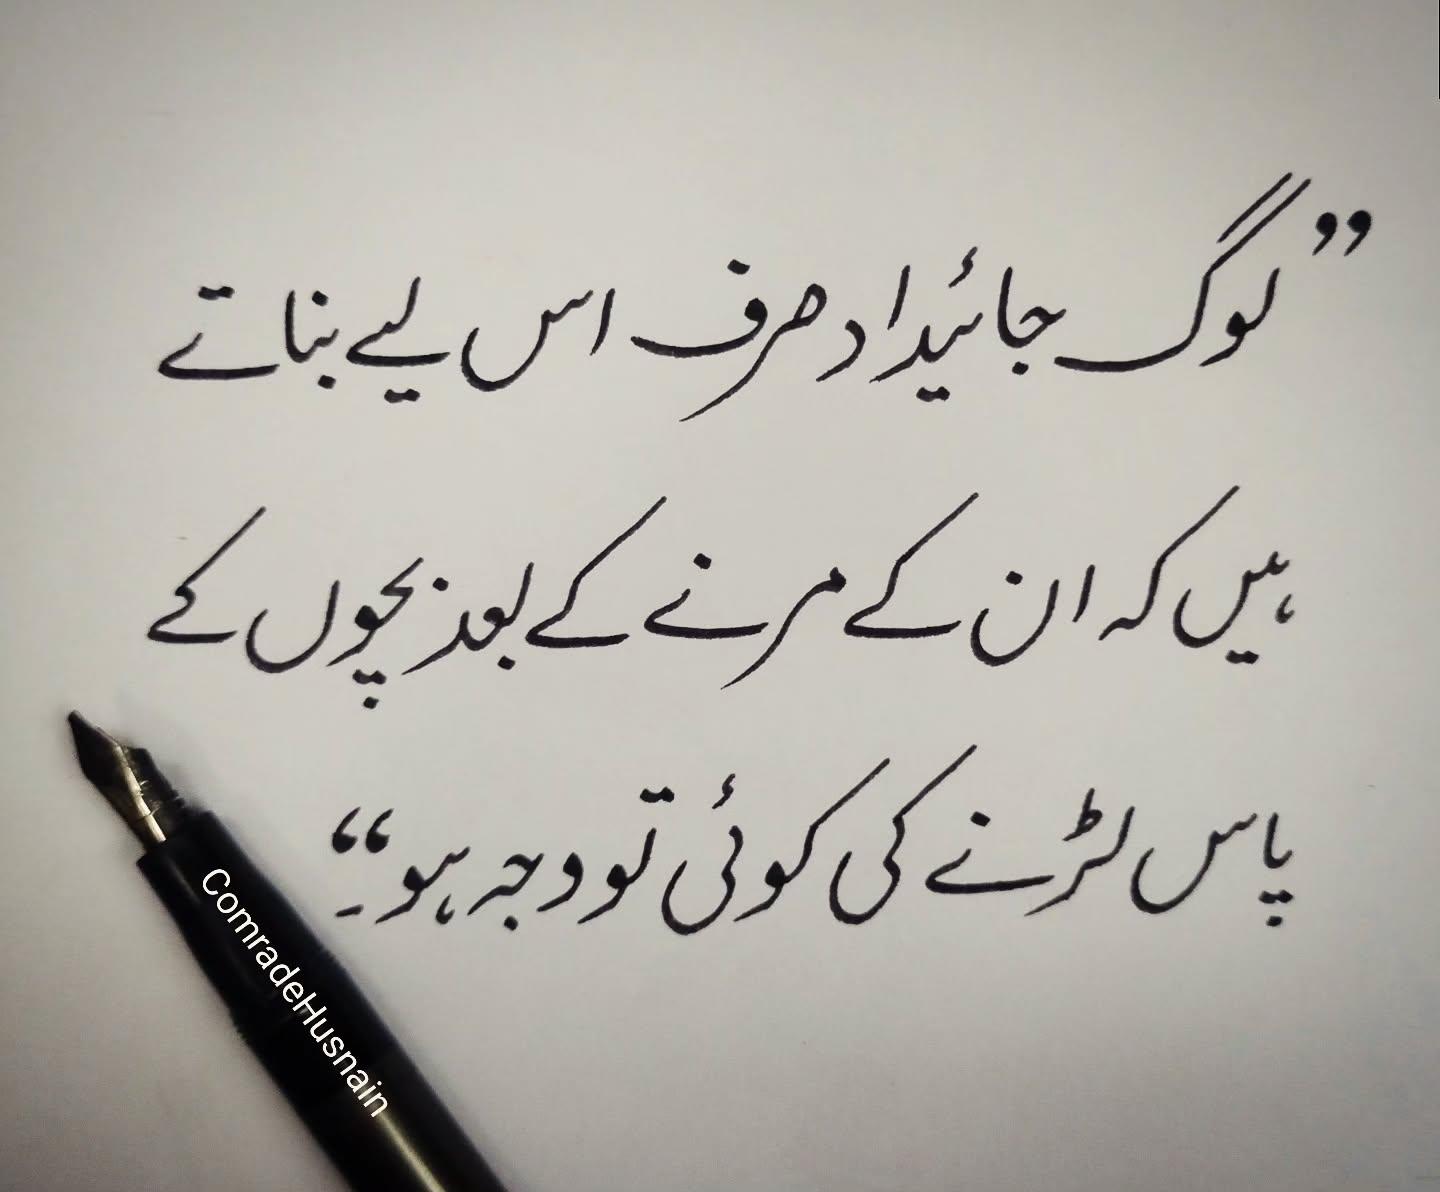 ”لوگ جائیداد صرف اس لیے بناتے
ہیں کہ ان کے مرنے کے بعد بچوں کے
پاس لڑنے کی کوئی تو وجہ ہو۔“
ComradeHusnain